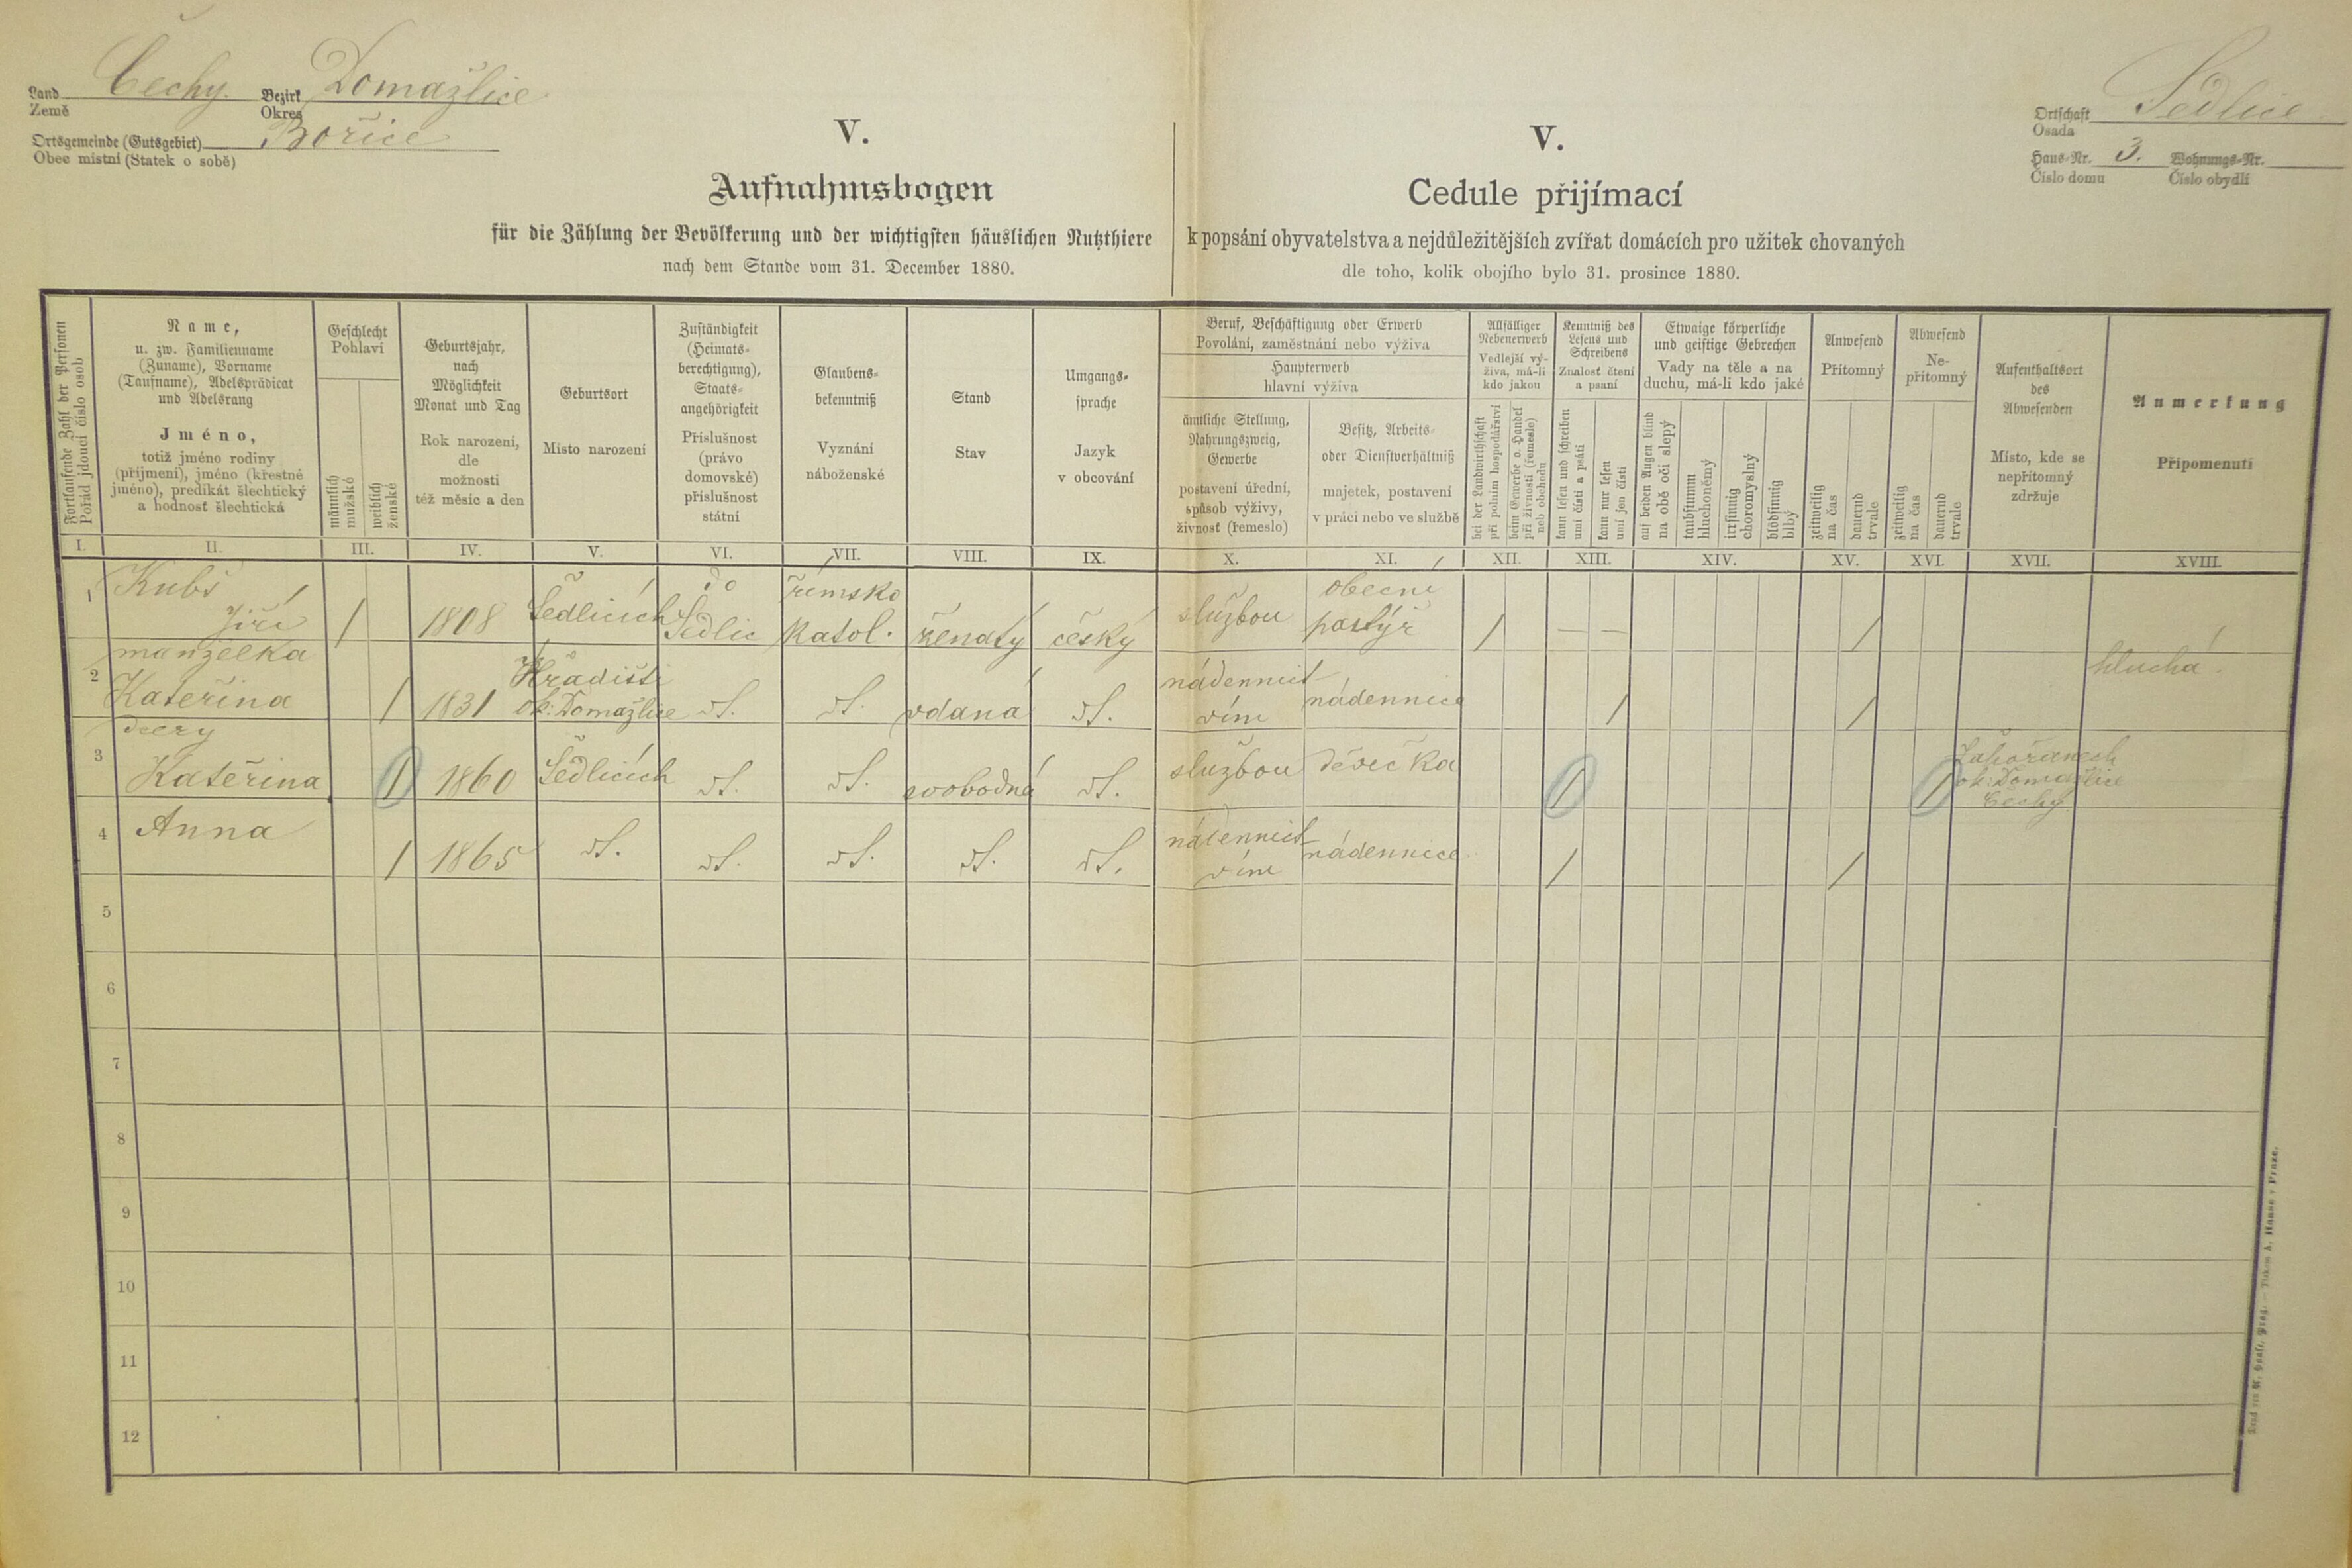 Land Čechy. Bezirk Domažlice
Země Okres
Ortsgemeinde (Gutsgebiet) Bořice
Obec místní (Statek o sobě)
V.
Aufnahmsbogen
für die Zählung der Bevölkerung und der wichtigsten häuslichen Nutzthiere
nach dem Stande vom 31. December 1880.
V.
Cedule přijímací
k popsání obyvatelstva a nejdůležitějších zvířat domácích pro užitek chovaných
dle toho, kolik obojího bylo 31. prosince 1880.
Ortschaft Sedlice
Osada
Haus-Nr. 3. Wohnungs-Nr.
Číslo domu Číslo obydlí
Fortlaufende Zahl der Personen
Pořád jdoucí číslo osob
Name,
u. zw. Familienname
(Zuname), Vorname
(Taufname), Adelsprädicat
und Adelsrang
Jméno,
totiž jméno rodiny
(příjmení), jméno (křestné
jméno), predikát šlechtický
a hodnosť šlechtická
Geschlecht
Pohlaví
männlich
mužské
weiblich
ženské
Geburtsjahr,
nach
Möglichkeit
Monat und Tag
Rok narození,
dle
možnosti
též měsíc a den
Geburtsort
Místo narození
Zuständigkeit
(Heimats-
berechtigung),
Staats-
angehörigkeit
Příslušnost
(právo
domovské)
příslušnost
státní
Glaubens-
bekenntniß
Vyznání
náboženské
Stand
Stav
Umgangs-
sprache
Jazyk
v obcování
Beruf, Beschäftigung oder Erwerb
Povolání, zaměstnání nebo výživa
Haupterwerb
hlavní výživa
ämtliche Stellung,
Nahrungszweig,
Gewerbe
postavení úřední,
spůsob výživy,
živnosť (řemeslo)
Besitz, Arbeits-
oder Dienstverhältniß
majetek, postavení
v práci nebo ve službě
Allfälliger
Nebenerwerb
Vedlejší vý-
živa, má-li
kdo jakou
bei der Landwirthschaft
při polním hospodářství
beim Gewerbe o. Handel
při živnosti (řemesle)
neb obchodu
Kenntniß des
Lesens und
Schreibens
Znalosť čtení
a psaní
kann lesen und schreiben
umí čísti a psáti
kann nur lesen
umí jen čísti
Etwaige körperliche
und geistige Gebrechen
Vady na těle a na
duchu, má-li kdo jaké
auf beiden Augen blind
na obě oči slepý
taubstumm
hluchoněmý
irrsinnig
choromyslný
blödsinnig
blbý
Anwesend
Přítomný
zeitweilig
na čas
dauernd
trvale
Abwesend
Ne-
přítomný
zeitweilig
na čas
dauernd
trvale
Aufenthaltsort
des
Abwesenden
Místo, kde se
nepřítomný
zdržuje
Anmerkung
Připomenutí
I. II. III. IV. V. VI. VII. VIII. IX. X. XI. XII. XIII. XIV. XV. XVI. XVII. XVIII.
Kubš do římsko obecní
1 Jiří / 1808 Sedlicích Sedlic katol. ženatý český službou pastýř / — — /
manželka Hradišti nádennict- hluchá.
2 Kateřina / 1831 ok: Domažlice dt. dt. vdaná dt. vím nádennice / /
dcery
3 Kateřina 1 1860 Sedlicích dt. dt. svobodná dt. službou děvečka 1 1 Zahořanech
ok: Domažlice
Čechy
4 Anna / 1865 dt. dt. dt. dt. dt. nádennict-
vím nádennice / /
5
6
7
8
9
10
11
12
Druck von A. Haase, Prag. — Tiskem A. Haase v Praze.